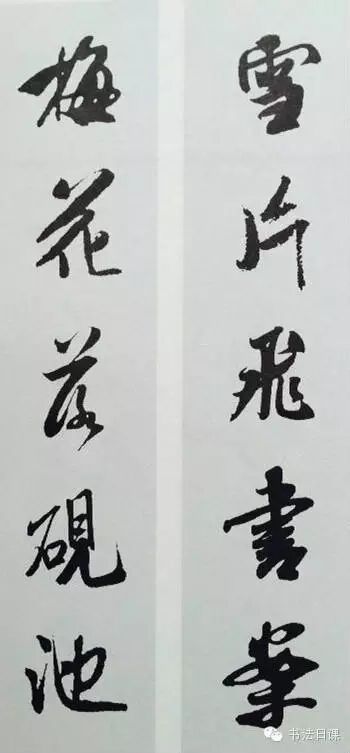 雪片飛書案
梅花落硯池
书法日课